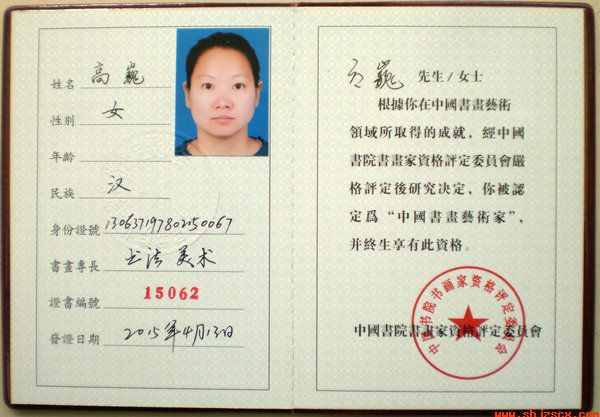 姓名 高巍
性别 女
年龄
民族 汉
身份證號 130637197802150067
書畫專長 书法 美术
證書編號 15062
發證日期 2015年4月13日
高巍 先生/女士
根據你在中國書畫藝術
領域所取得的成就，經中國
書院書畫家資格評定委員會嚴
格評定後研究决定，你被認
定爲“中國書畫藝術家”，
并終生享有此資格。
中國書院書畫家資格評定委員會
中国书院书画家资格评定委员会
www.shjzscx.com